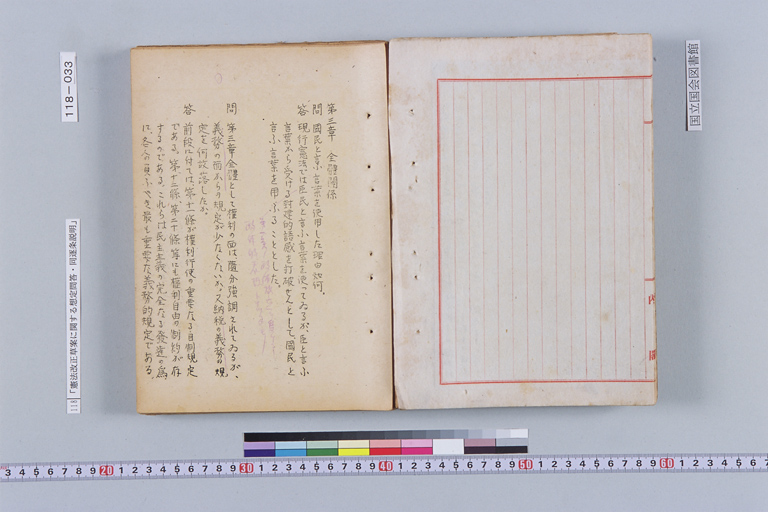 国立国会図書館
内閣
第三章 全體関係
問 國民と言ふ言葉を使用した理由如何。
答 現行憲法では臣民と言ふ言葉を使つてゐるが、臣と言ふ
言葉から受ける封建的語感を打破せんとして、國民と
言ふ言葉を用ふることとした。
問 第三章全體として権利の面は隨分強調されてゐるが、
義務の面からの規定が少なくないか、又納税の義務の規
定を何故落したか。
答 前段に付ては、第十一條が権利行使の重要なる自制規定
である。第十二條、第二十條等にも権利自由の制約が存
するのである。これらは民主主義の完全なる發達の為
に、各分員ふべき最も重要な義務的規定である。
118-033
118 「憲法改正草案に関する想定問答・同逐条説明」
3 4 5 6 7 8 9 20 1 2 3 4 5 6 7 8 9 30 1 2 3 4 5 6 7 8 9 40 1 2 3 4 5 6 7 8 9 50 1 2 3 4 5 6 7 8 9 60 1 2 3 4 5 6 7